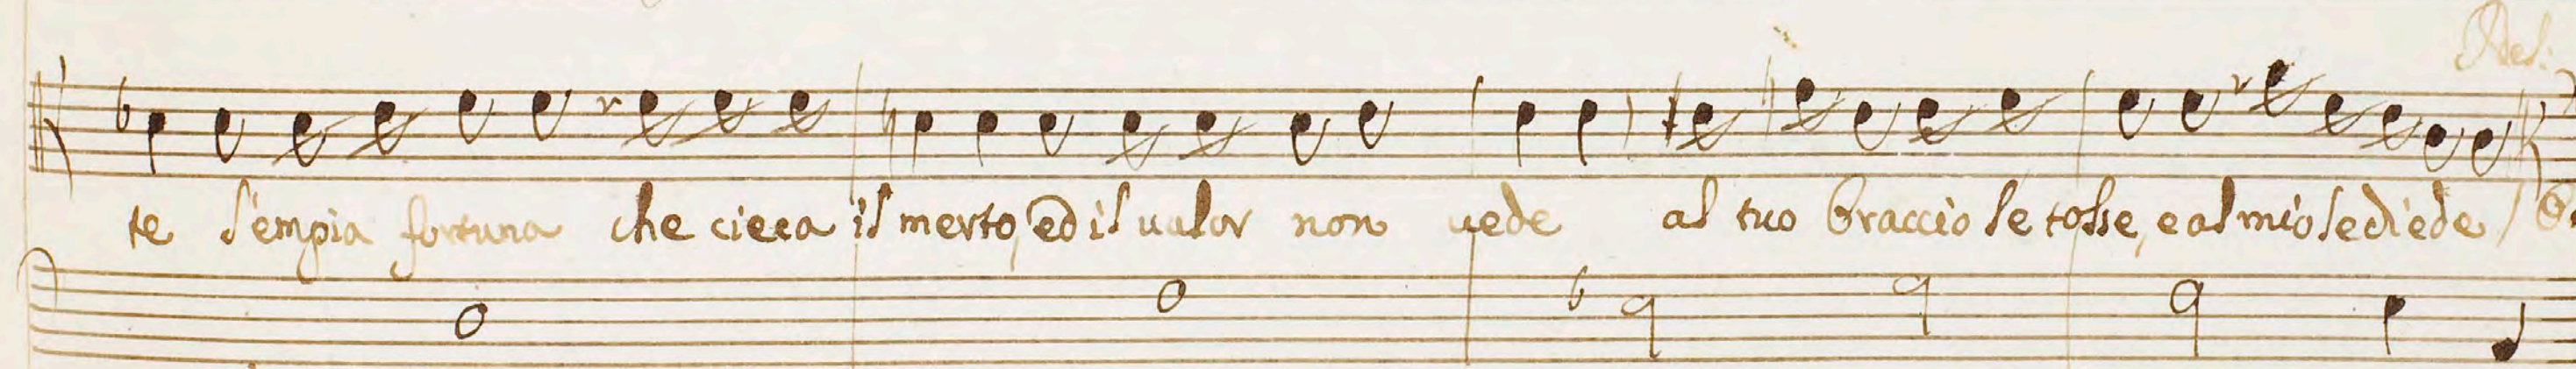 Adel:
te l'empia fortuna che cieca il merto, ed il ualor non uede al tuo braccio le tolse, e al mio le diede /